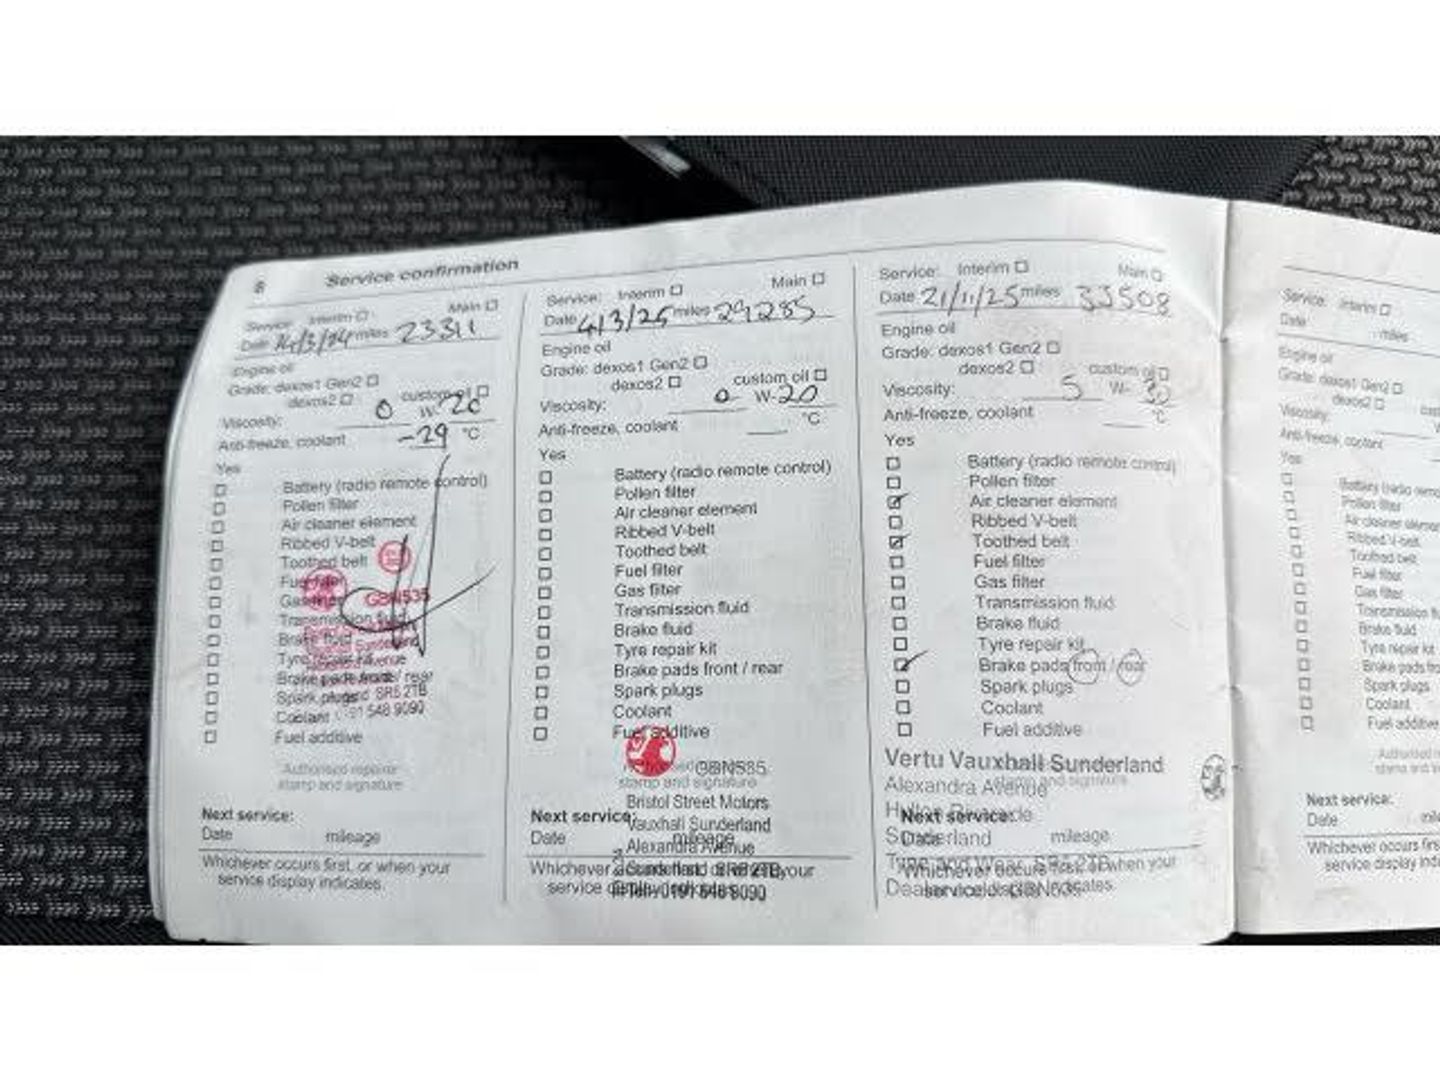 8 Service confirmation
Service: Interim Main
Date 14/3/24 miles 23311
Engine oil
Grade: dexos1 Gen2
dexos2 custom oil
Viscosity: 0 W- 20
Anti-freeze, coolant -29 °C
Yes
Battery (radio remote control)
Pollen filter
Air cleaner element
Ribbed V-belt
Toothed belt
Fuel filter
Gas filter GBN535
Transmission fluid
Brake fluid Sunderland
Tyre repair kit Avenue
Brake pads front / rear
Spark plugs SR5 2TB
Coolant 0191 548 9090
Fuel additive
Authorised repairer
stamp and signature
Next service:
Date mileage
Whichever occurs first, or when your
service display indicates.
Service: Interim Main
Date 4/3/25 miles 29285
Engine oil
Grade: dexos1 Gen2
dexos2 custom oil
Viscosity: 0 W- 20
Anti-freeze, coolant °C
Yes
Battery (radio remote control)
Pollen filter
Air cleaner element
Ribbed V-belt
Toothed belt
Fuel filter
Gas filter
Transmission fluid
Brake fluid
Tyre repair kit
Brake pads front / rear
Spark plugs
Coolant
Fuel additive
GBN535
stamp and signature
Bristol Street Motors
Next service: Vauxhall Sunderland
Date mileage
Alexandra Avenue
Whichever Sunderland SR5 2TB your
service Tel: 0191 548 9090
Service: Interim Main
Date 21/11/25 miles 33508
Engine oil
Grade: dexos1 Gen2
dexos2 custom oil
Viscosity: 5 W- 30
Anti-freeze, coolant °C
Yes
Battery (radio remote control)
Pollen filter
Air cleaner element
Ribbed V-belt
Toothed belt
Fuel filter
Gas filter
Transmission fluid
Brake fluid
Tyre repair kit
Brake pads front / rear
Spark plugs
Coolant
Fuel additive
Vertu Vauxhall Sunderland
stamp and signature
Alexandra Avenue
Hylton Riverside
Next service:
Sunderland
Date mileage
Tyne and Wear SR5 2TB when your
Dealer code GBN535
Service: Interim
Date miles
Engine oil
Grade: dexos1 Gen2
dexos2
Viscosity:
Anti-freeze, coolant
Yes
Battery (radio
Pollen filter
Air cleaner
Ribbed V-belt
Toothed belt
Fuel filter
Gas filter
Transmission
Brake fluid
Tyre repair kit
Brake pads
Spark plugs
Coolant
Fuel additive
Authorised
stamp and
Next service:
Date
Whichever occurs
service display